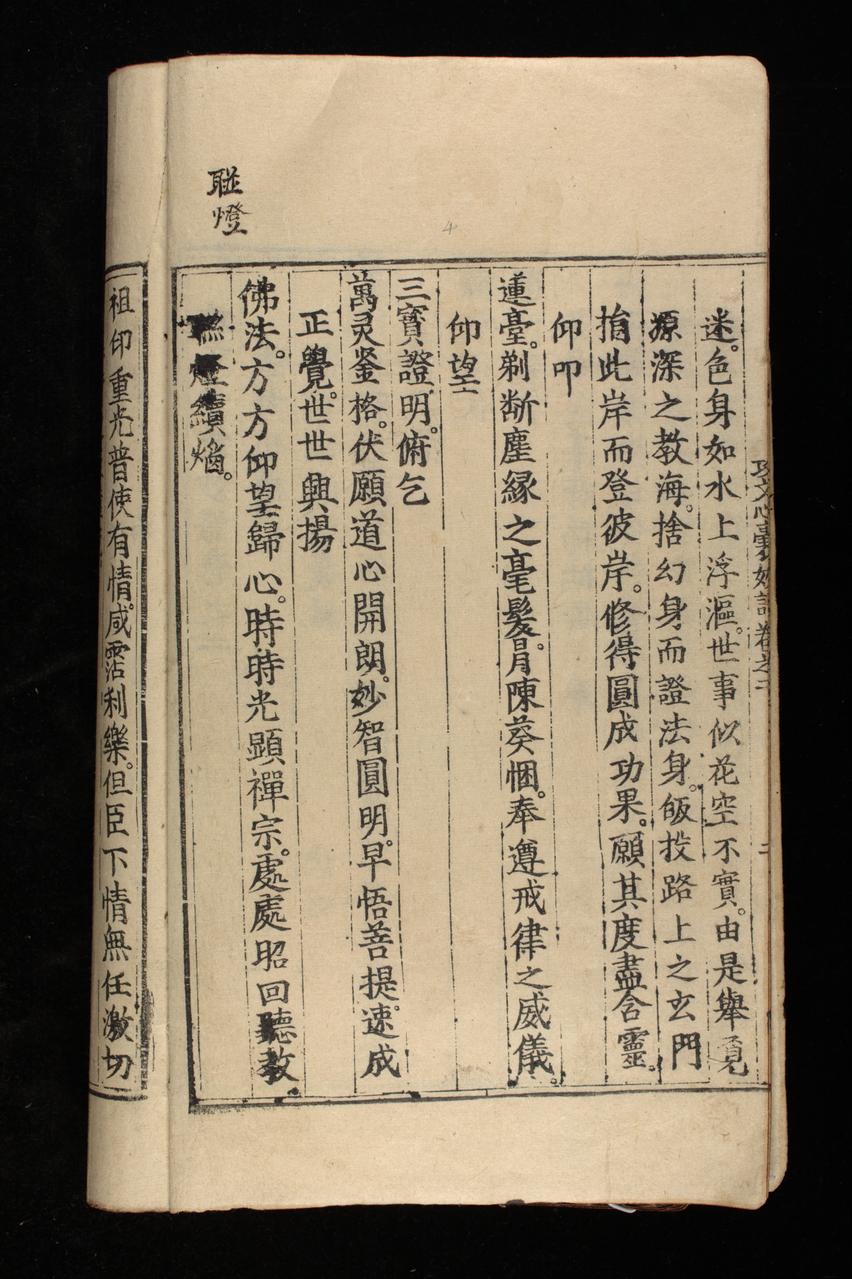 迷。色身如水上浮漚。世事似花空不實。由是舉覓
源深之教海。捨幻身而證法身。皈投路上之玄門
指此岸而登彼岸。修得圓成功果。願其度盡含靈。
仰叩
蓮臺。剃断塵緣之毫髮。肙陳葵悃。奉遵戒律之威儀。
仰望
三寳證明。俯乞
萬灵鉴格。伏願道心開朗。妙智圓明。早悟菩提。速成
正覺。世世興揚
佛法。方方仰望歸心。時時光顕禪宗。處處昭回聽教
聮燈續焰。
聮燈
祖印重光普使有情。咸霑利樂。但臣下情無任激切